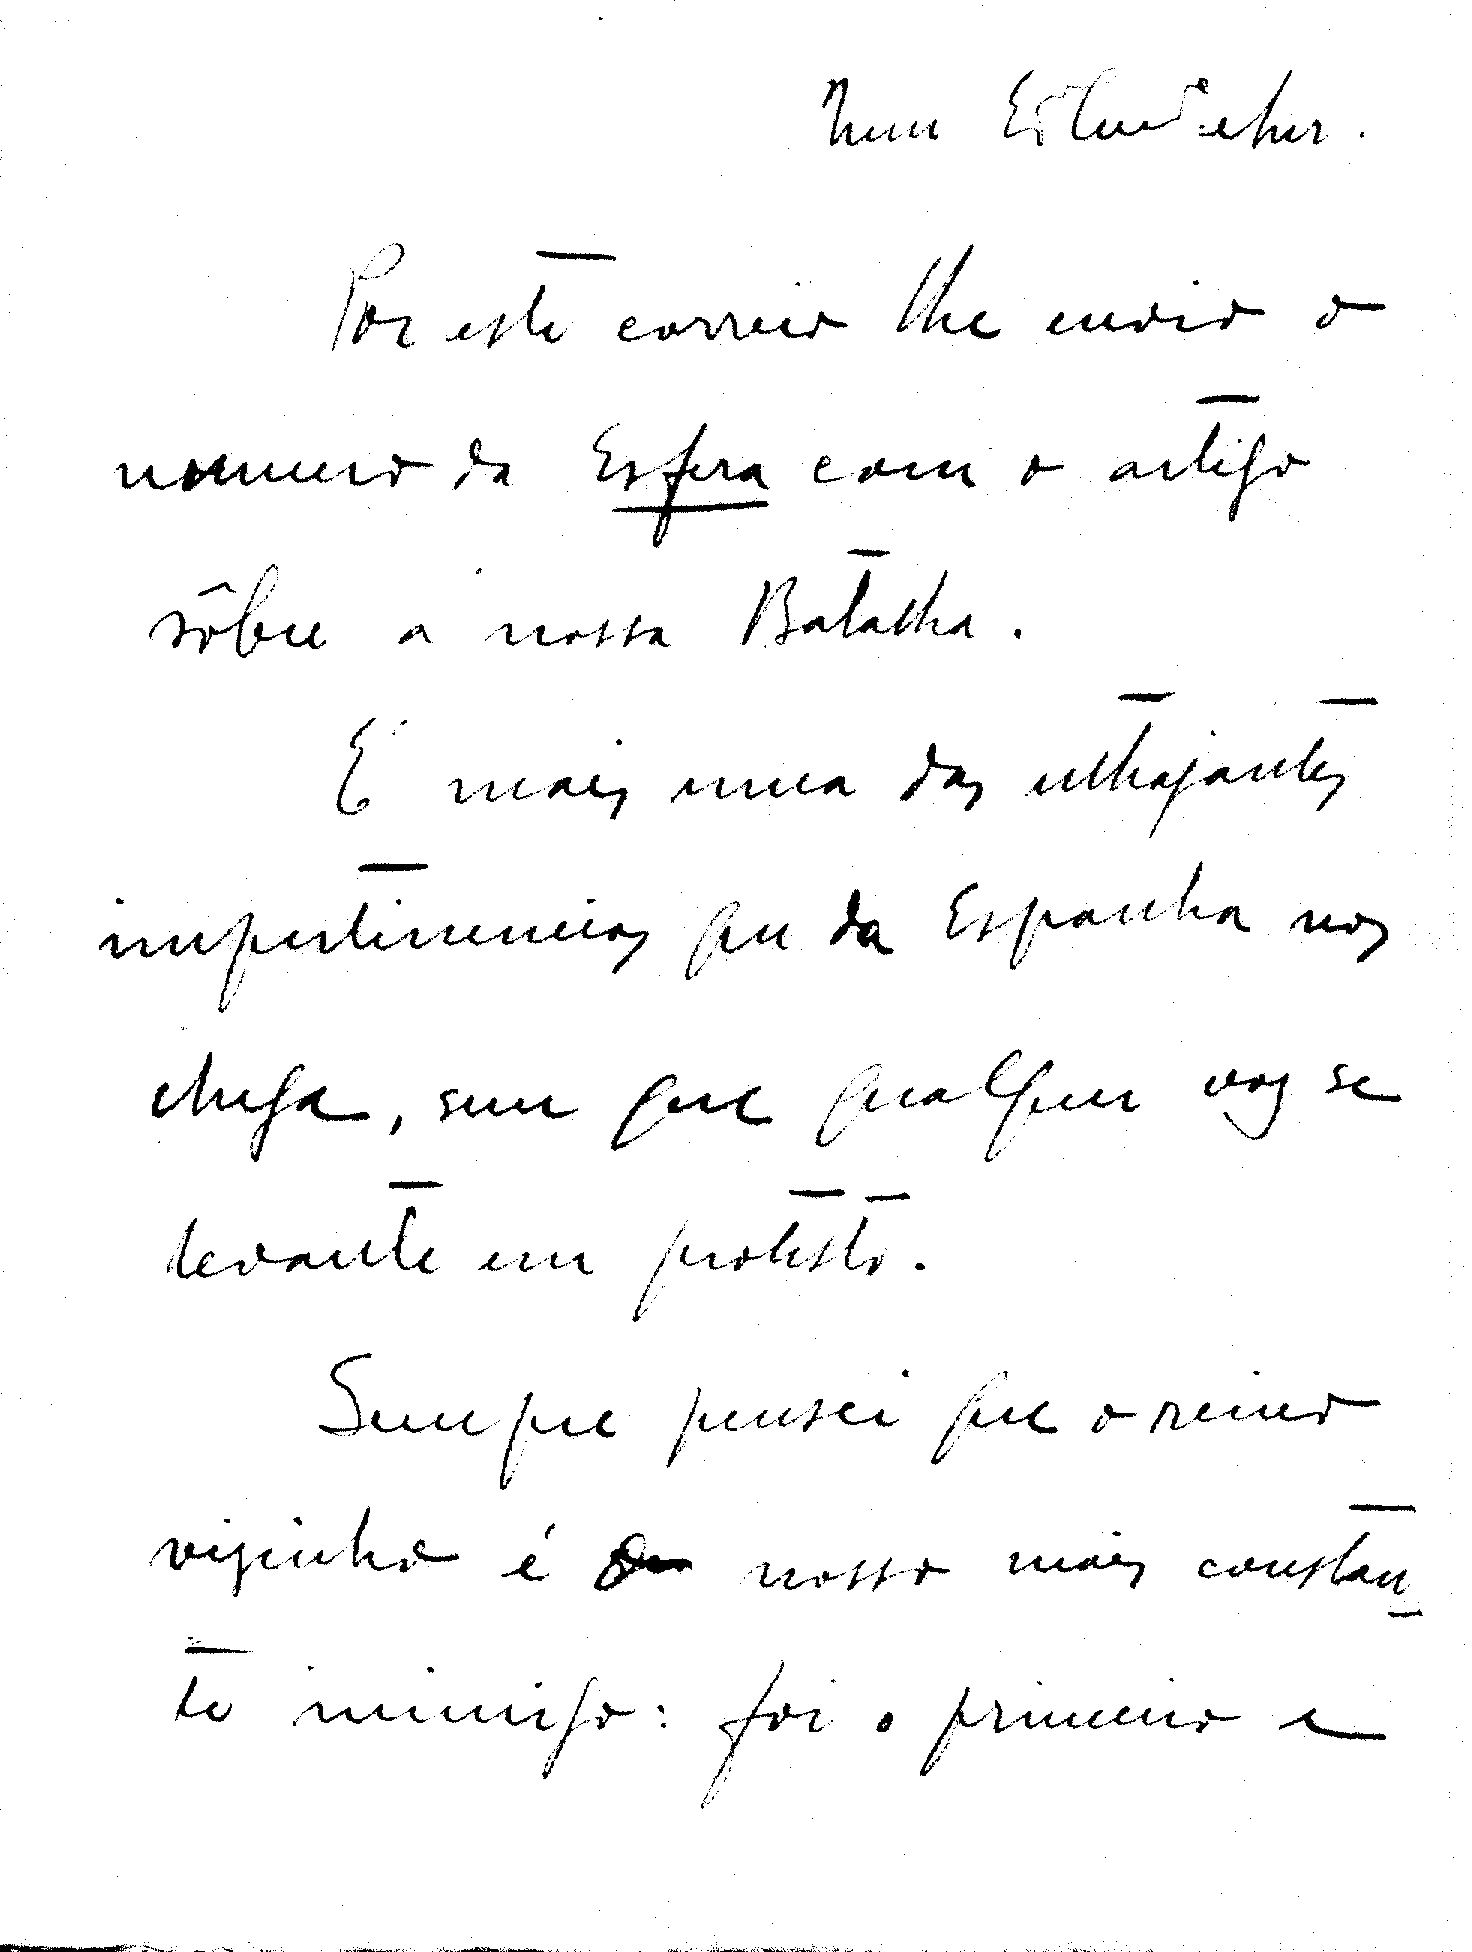 Por este correio lhe envio o
numero da Esfera com o artigo
sôbre a nossa Batalha.
É mais uma das ultrajantes
impertinencias que da Espanha nos
chega, sem que qualquer voz se
levante em protesto.
Sempre pensei que o reino
vizinho é o nosso mais constan-
te inimigo: foi o primeiro e